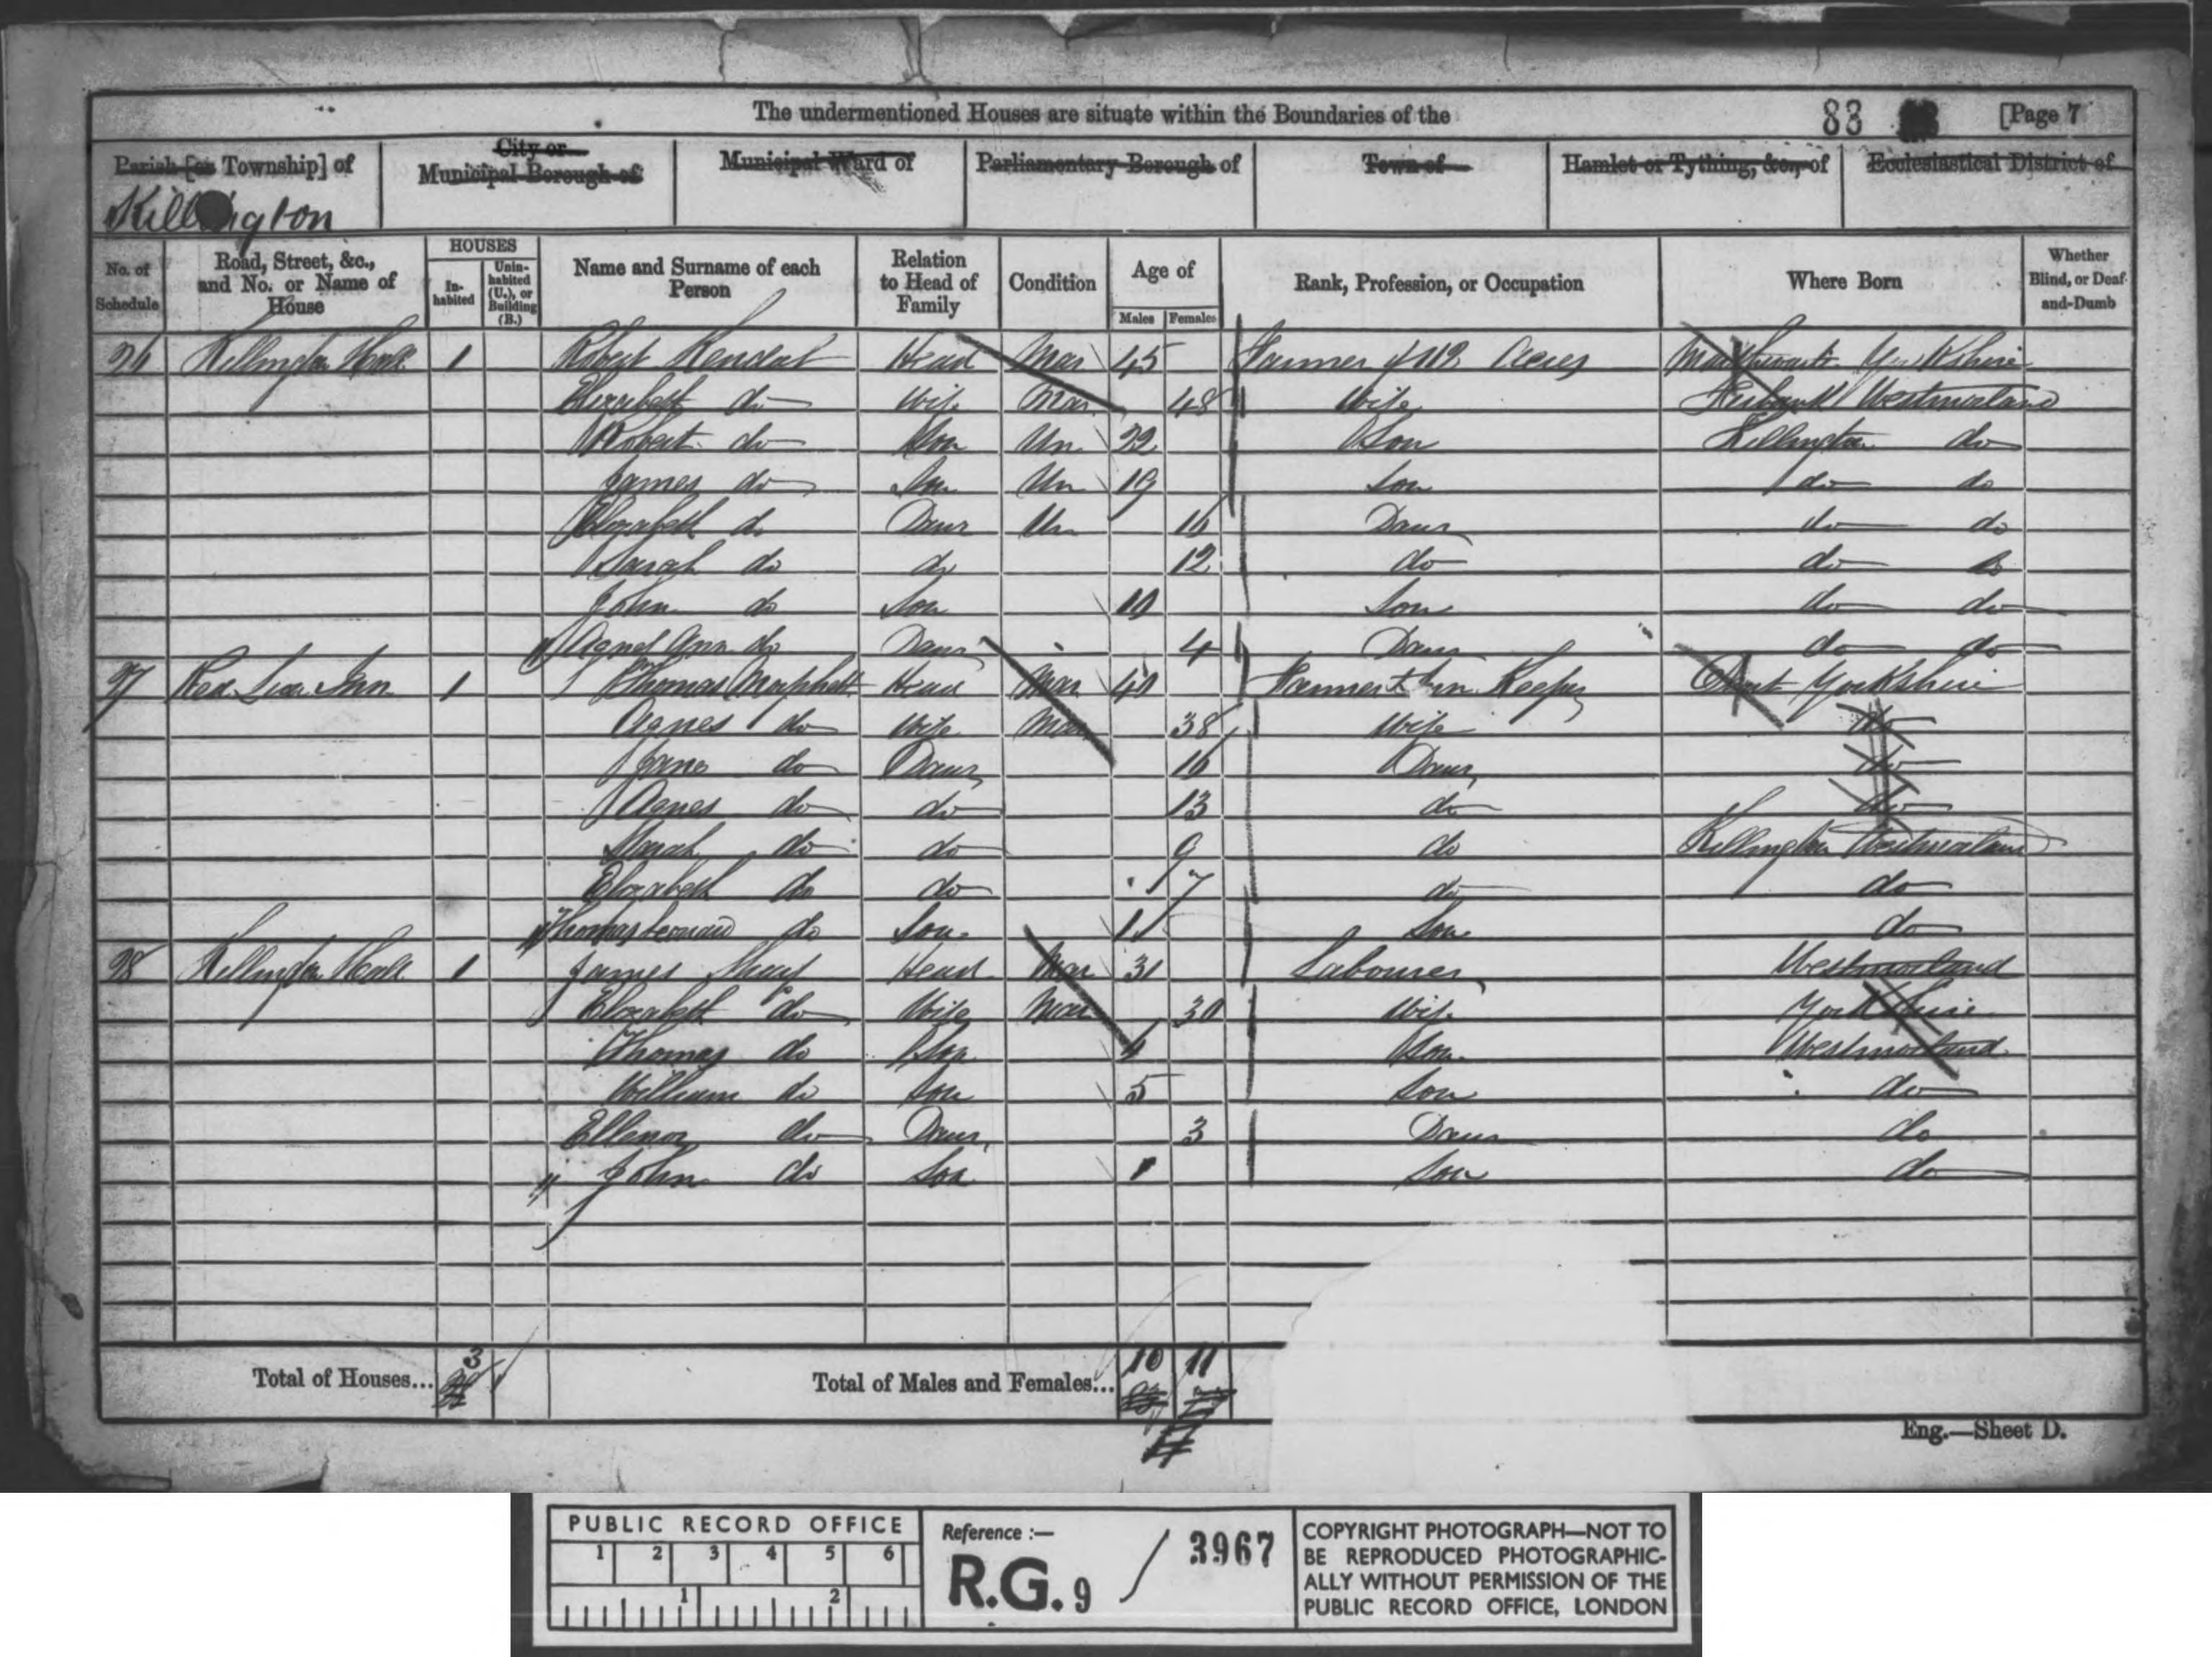 The undermentioned Houses are situate within the Boundaries of the 83 [Page 7
Parish [or Township] of City or Municipal Borough of Municipal Ward of Parliamentary Borough of Town of Hamlet or Tything, &c., of Ecclesiastical District of
Killington
No. of Schedule Road, Street, &c., and No. or Name of House HOUSES Inhabited Uninhabited (U.), or Building (B.) Name and Surname of each Person Relation to Head of Family Condition Age of Males Females Rank, Profession, or Occupation Where Born Whether Blind, or Deaf-and-Dumb
26 Killington Hall 1 Robert Kendal Head Mar 45 Farmer of 112 Acres Yorkshire
Elizabeth do Wife Mar 48 Wife Firbank Westmorland
Robert do Son Un 22 Son Killington do
James do Son Un 19 Son do do
Elizabeth do Daur Un 16 Daur do do
Sarah do do 12 do do do
John do Son 10 Son do do
Agnes Ann do Daur 4 Daur do do
27 Red Lion Inn 1 Thomas Head Mar 40 Farmer & Inn Keeper Dent Yorkshire
Agnes do Wife Mar 38 Wife do
Jane do Daur 16 Daur do
Agnes do do 13 do do
Sarah do do 9 do Killington Westmorland
Elizabeth do do 7 do do
Thomas do Son 1 Son do
28 Killington Hall 1 James Head Mar 31 Labourer Westmorland
Elizabeth do Wife Mar 30 Wife Yorkshire
Thomas do Son Son Westmorland
William do Son 5 Son do
Ellenor do Daur 3 Daur do
John do Son 1 Son do
Total of Houses... 3 Total of Males and Females... 10 11
Eng.—Sheet D.
PUBLIC RECORD OFFICE
1 2 3 4 5 6
1 2
Reference :—
R.G. 9 / 3967
COPYRIGHT PHOTOGRAPH—NOT TO
BE REPRODUCED PHOTOGRAPHIC-
ALLY WITHOUT PERMISSION OF THE
PUBLIC RECORD OFFICE, LONDON